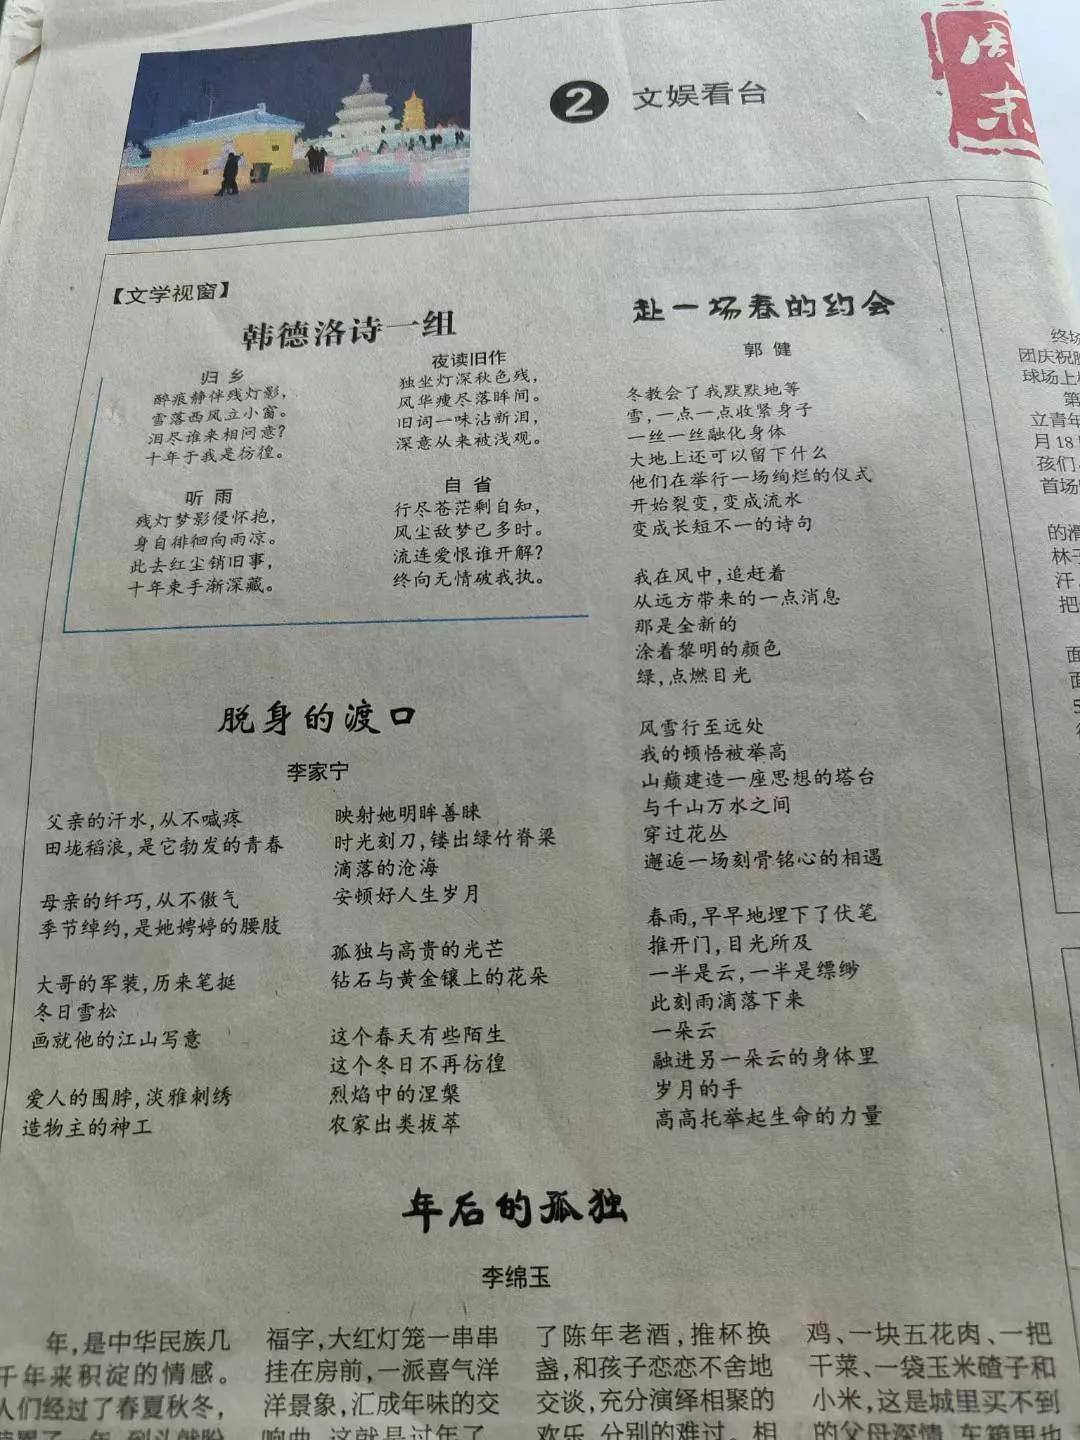 2 文娱看台
周末
【文学视窗】
韩德洛诗一组
归 乡
醉痕静伴残灯影，
雪落西风立小窗。
泪尽谁来相问意？
十年于我是彷徨。
听 雨
残灯梦影侵怀抱，
身自徘徊向雨凉。
此去红尘销旧事，
十年束手渐深藏。
夜读旧作
独坐灯深秋色残，
风华瘦尽落眸间。
旧词一味沾新泪，
深意从来被浅观。
自 省
行尽苍茫剩自知，
风尘敌梦已多时。
流连爱恨谁开解？
终向无情破我执。
脱身的渡口
李家宁
父亲的汗水，从不喊疼
田垅稻浪，是它勃发的青春
母亲的纤巧，从不傲气
季节绰约，是她娉婷的腰肢
大哥的军装，历来笔挺
冬日雪松
画就他的江山写意
爱人的围脖，淡雅刺绣
造物主的神工
映射她明眸善睐
时光刻刀，镂出绿竹脊梁
滴落的沧海
安顿好人生岁月
孤独与高贵的光芒
钻石与黄金镶上的花朵
这个春天有些陌生
这个冬日不再彷徨
烈焰中的涅槃
农家出类拔萃
赴一场春的约会
郭 健
冬教会了我默默地等
雪，一点一点收紧身子
一丝一丝融化身体
大地上还可以留下什么
他们在举行一场绚烂的仪式
开始裂变，变成流水
变成长短不一的诗句
我在风中，追赶着
从远方带来的一点消息
那是全新的
涂着黎明的颜色
绿，点燃目光
风雪行至远处
我的顿悟被举高
山巅建造一座思想的塔台
与千山万水之间
穿过花丛
邂逅一场刻骨铭心的相遇
春雨，早早地埋下了伏笔
推开门，目光所及
一半是云，一半是缥缈
此刻雨滴落下来
一朵云
融进另一朵云的身体里
岁月的手
高高托举起生命的力量
年后的孤独
李绵玉
年，是中华民族几
千年来积淀的情感。
人们经过了春夏秋冬，
福字，大红灯笼一串串
挂在房前，一派喜气洋
洋景象，汇成年味的交
响曲，这就是过年了
了陈年老酒，推杯换
盏，和孩子恋恋不舍地
交谈，充分演绎相聚的
欢乐，分别的难过。相
鸡、一块五花肉、一把
干菜、一袋玉米碴子和
小米，这是城里买不到
的父母深情，车箱里也
终场
团庆祝胜
球场上
第
立青年
月18
孩们
首场
的滑
林子
汗，
把
面
面
5